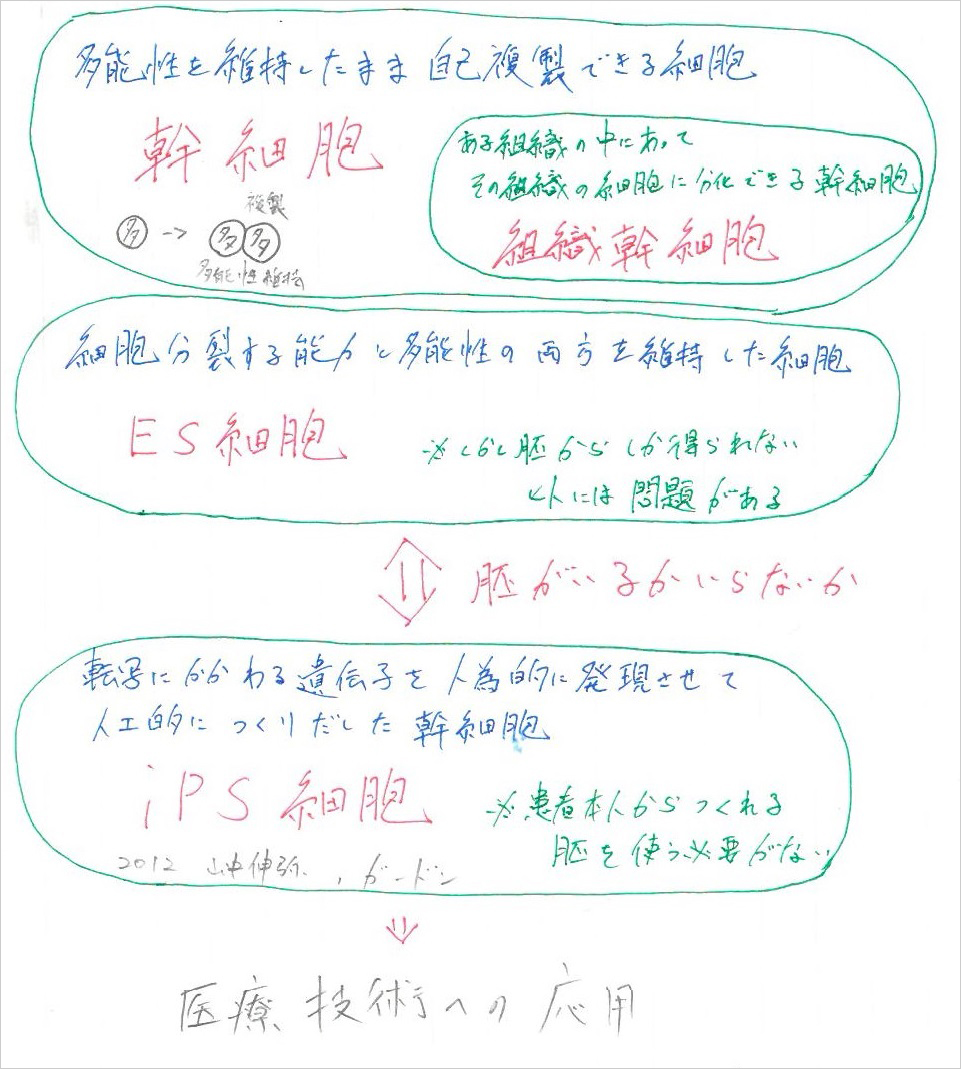 多能性を維持したまま自己複製できる細胞
幹細胞
複製
多 → 多多
多能性維持
ある組織の中にあって
その組織の細胞に分化できる幹細胞
組織幹細胞
細胞分裂する能力と多能性の両方を維持した細胞
ES細胞
※しかし胚からしか得られない
人には問題がある
胚がいるかいらないか
転写にかかわる遺伝子を人為的に発現させて
人工的につくりだした幹細胞
iPS細胞
※患者本人からつくれる
胚を使う必要がない
2012 山中伸弥、ガードン
医療技術への応用